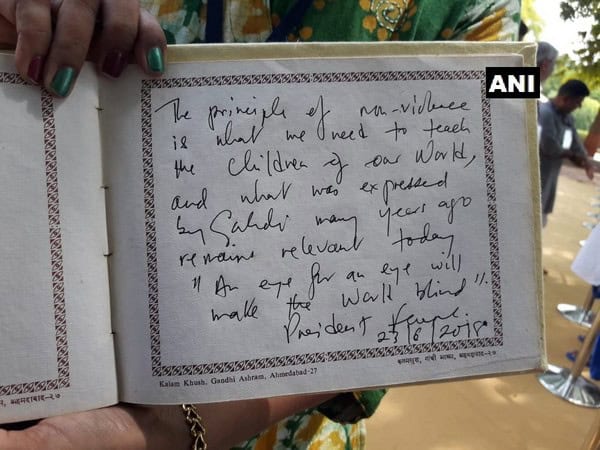 ANI
The principle of non-violence
is what we need to teach
the children of our World,
and what was expressed
by Gandhi many years ago
remains relevant today
"An eye for an eye will
make the World blind".
President
23/6/2018
Kalam Khush, Gandhi Ashram, Ahmedabad-27
कलमखुश, गांधी आश्रम, अहमदाबाद-२७
अहमदाबाद-२७